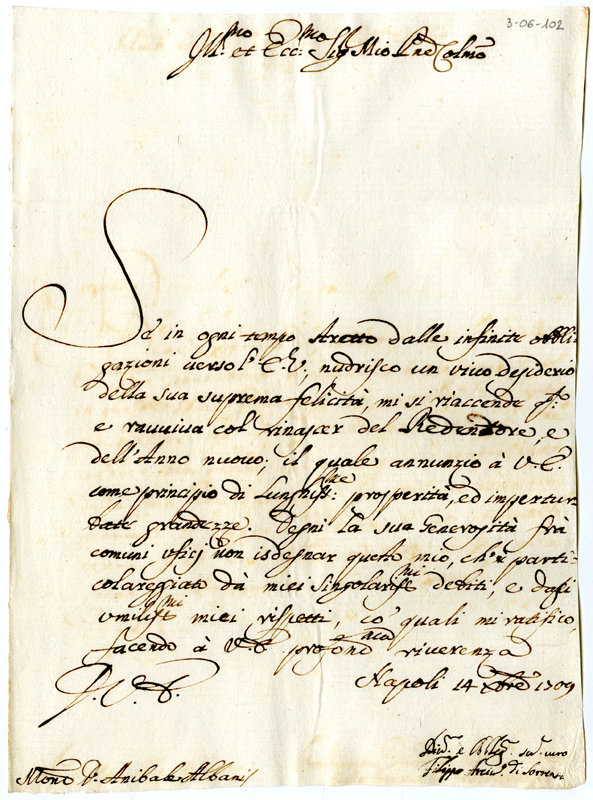 3-06-102
Ill.mo et Ecc.mo Sig Mio P.ne Colmo
Se in ogni tempo stretto dalle infinite obbli
gazioni verso l'E.V., nudrisco un vivo desiderio
della sua suprema felicità, mi si riaccende
e ravviva col rinascer del Redentore, e
dell'Anno nuovo; il quale annunzio à V.E.
come principio di Lunghiss:me prosperità, ed impertur
bate grandezze. Degni la sua Generosità frà
comuni ufici non isdegnar questo mio, ch'è parti
colareggiato dà miei singolariss.mi debiti, e dagl
umiliss.mi miei rispetti, co' quali mi ratifico,
facendo à V.E. profond.ma riverenza
Napoli 14 Xbre 1709
D.V.E.
Div. e Obblig. ser. vero
Filippo Arciv. di Sorrento
Mons.r D. Anibale Albani